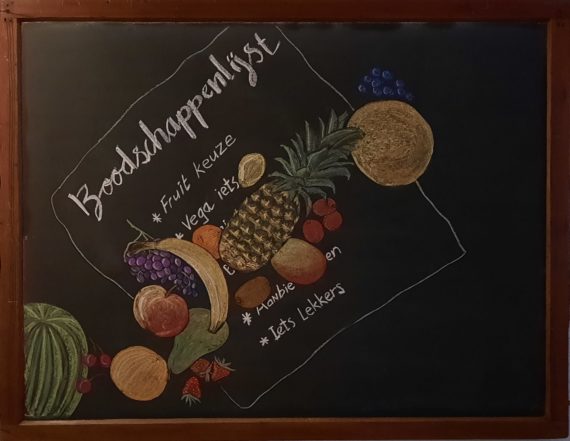 Boodschappenlijst
* Fruit keuze
* Vega iets
* en
* Iets Lekkers